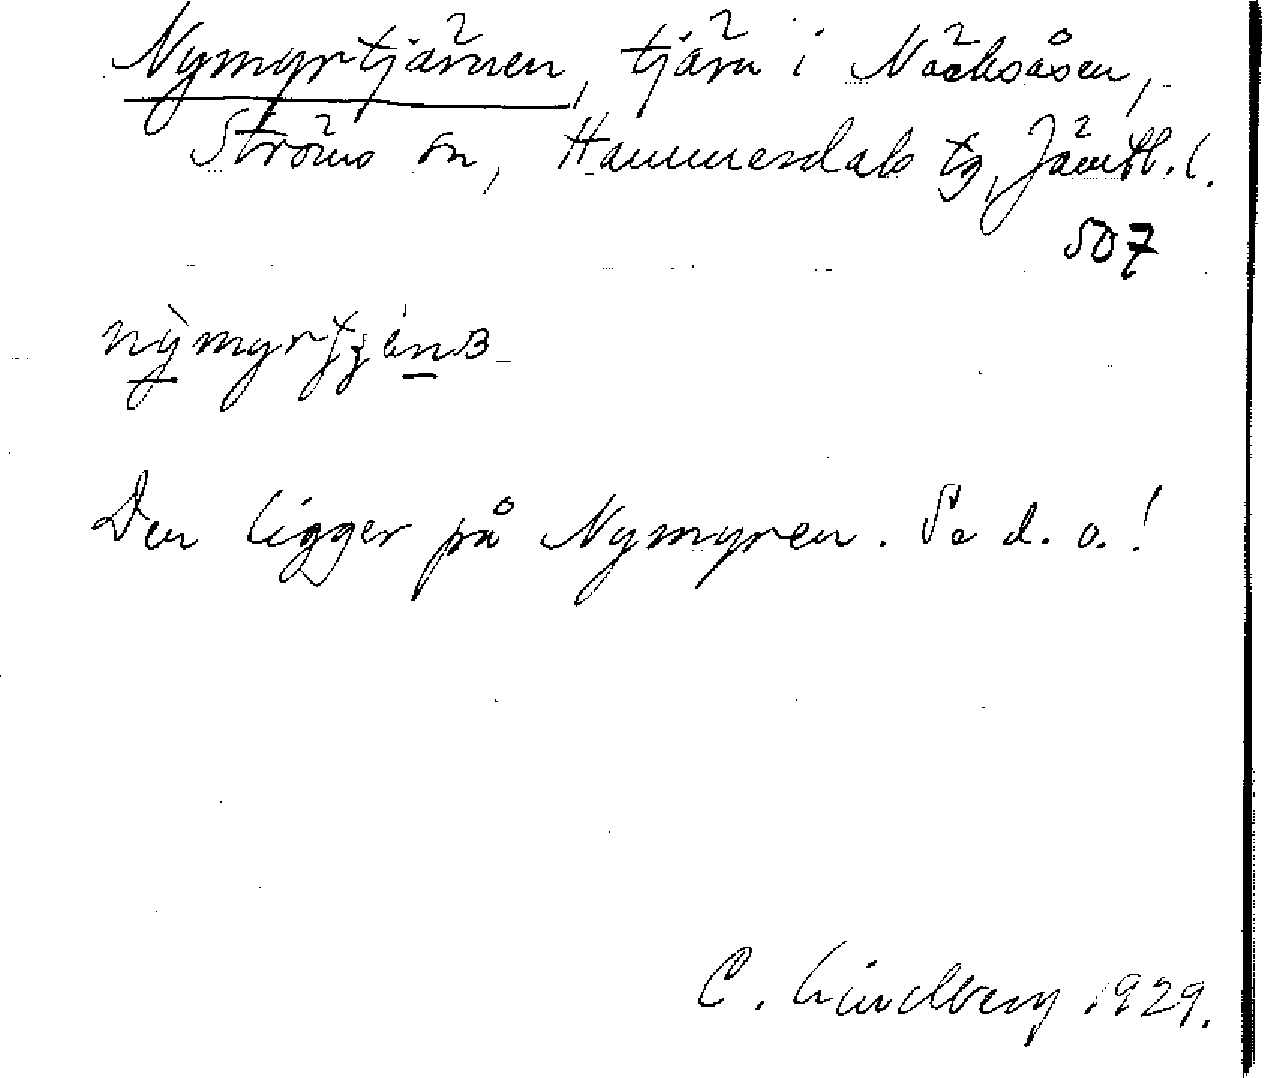 Nymyrtjärnen, tjärn i Näcksåsen,
Ströms sn, Hammerdals tg, Jämtl. l.
507
Den ligger på Nymyren. Se d. o.!
C. Lindberg 1929.